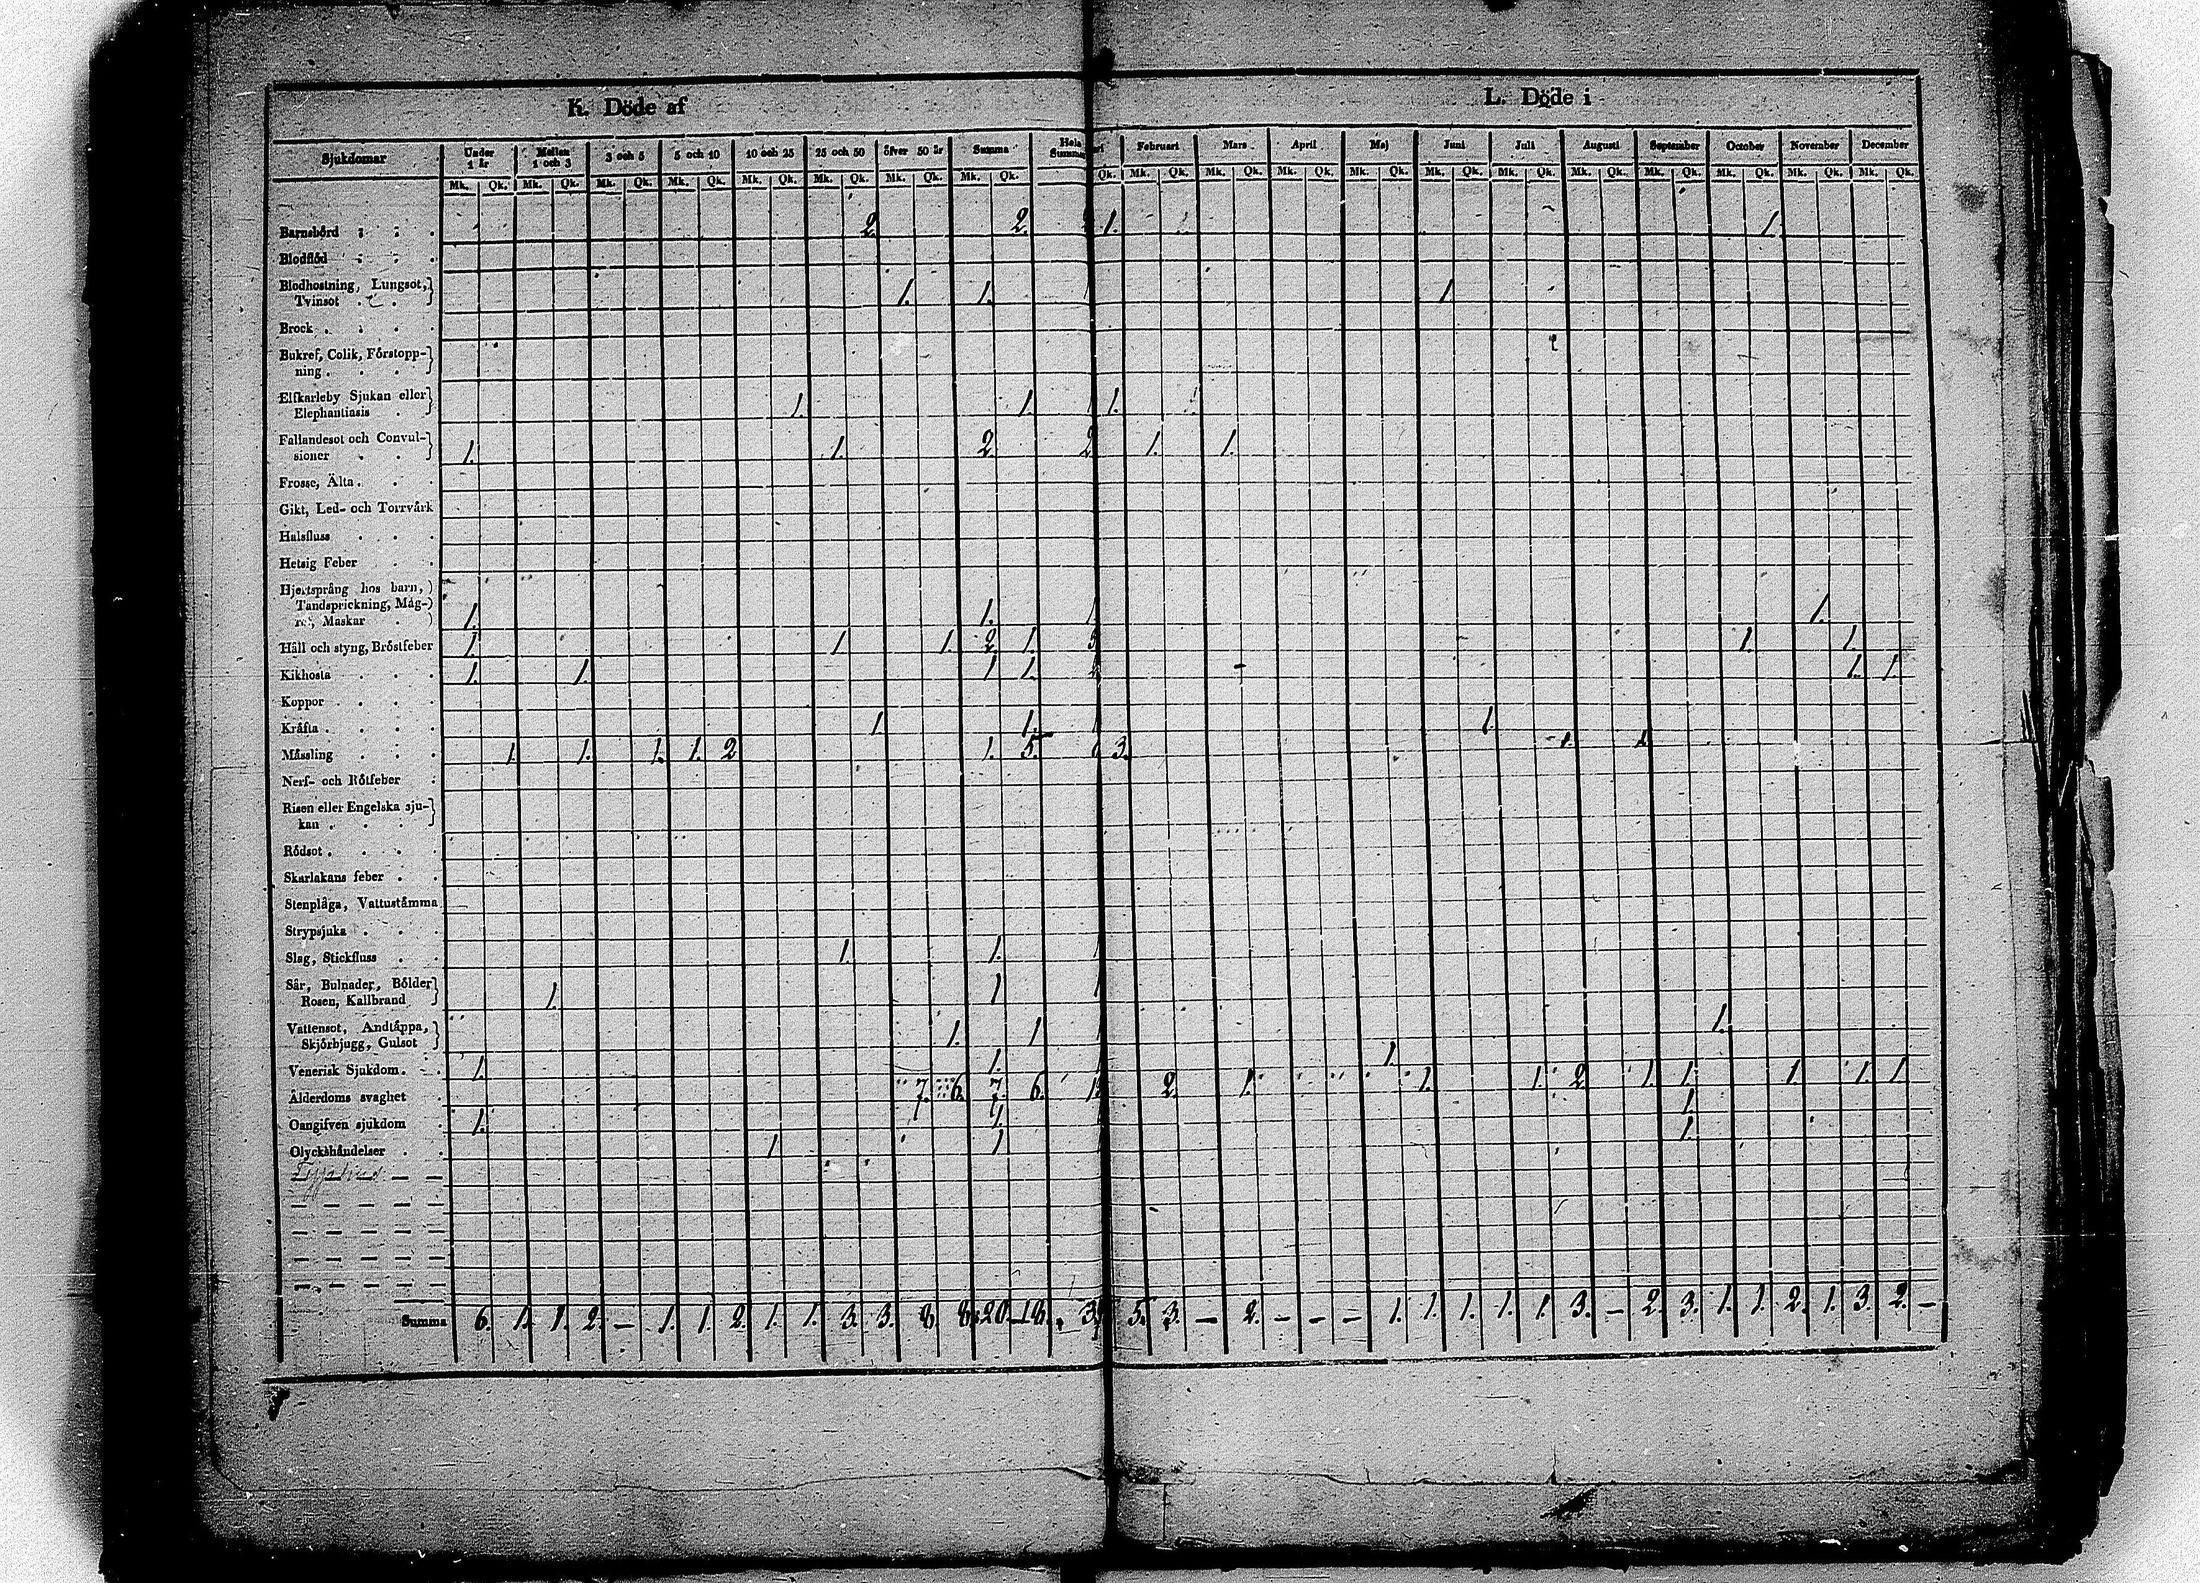 K. Döde af L. Döde i
Sjukdomar Under 1 år Mellan 1 och 3 3 och 5 5 och 10 10 och 25 25 och 50 öfver 50 år Summa Hela Summa Februari Mars April Maj Juni Juli Augusti September October November December
Mk. Qk. Mk. Qk. Mk. Qk. Mk. Qk. Mk. Qk. Mk. Qk. Mk. Qk. Mk. Qk. Qk. Mk. Qk. Mk. Qk. Mk. Qk. Mk. Qk. Mk. Qk. Mk. Qk. Mk. Qk. Mk. Qk. Mk. Qk. Mk. Qk. Mk. Qk.
Barnsbörd 2. 2. 1. 1.
Blodflöd
Blodhostning, Lungsot,
Tvinsot 1. 1. 1
Brock
Bukref, Colik, Förstopp-
ning
Elfkarleby Sjukan eller
Elephantiasis 1. 1. 1 1.
Fallandesot och Convul-
sioner 1. 1. 2. 2 1. 1.
Frosse, Älta
Gikt, Led- och Torrvärk
Halsfluss
Hetsig Feber
Hjertsprång hos barn,
Tandsprickning, Mag-
ref, Maskar 1. 1. 1 1.
Håll och styng, Bröstfeber 1. 1. 1. 2. 1. 1. 1.
Kikhosta 1. 1. 1 1. 1. 1.
Koppor
Kräfta 1. 1. 1 1.
Mässling 1. 1. 1. 1. 2 1. 5. 3.
Nerf- och Rötfeber
Risen eller Engelska sju-
kan
Rödsot
Skarlakans feber
Stenplåga, Vattustämma
Strypsjuka
Slag, Stickfluss 1. 1. 1
Sår, Bulnader, Bölder
Rosen, Kallbrand 1. 1 1
Vattensot, Andtäppa,
Skjörbjugg, Gulsot 1. 1 1 1.
Venerisk Sjukdom 1. 1. 1 1.
Ålderdoms svaghet 7. 6. 7. 6. 2. 1. 1. 1. 2. 1. 1. 1. 1. 1.
Oangifven sjukdom 1. 1. 1.
Olyckshändelser 1 1 1.
Summa 6. 1. 1. 2. — 1. 1. 2. 1. 1. 3. 3. 8. 8. 20. 18. 5. 3. — 2. — — — 1. 1. 1. 1. 1. 3. — 2. 3. 1. 1. 2. 1. 3. 2. —